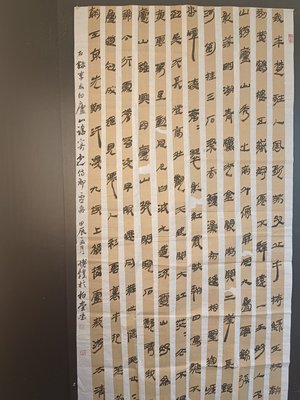 我本楚狂人鳳歌笑孔丘手持綠玉杖朝
別黃鶴樓五嶽尋仙不辭遠一生好入名
山遊廬山秀出南斗傍屏風九疊雲錦張
影落明湖青黛光金闕前開二峯長銀
河倒挂三石梁香爐瀑布遙相望迴崖沓
嶂凌蒼蒼翠影紅霞映朝日鳥飛不到吳
天長登高壯觀天地間大江茫茫去不還
黃雲萬里動風色白波九道流雪山好為
廬山謠興因廬山發閑窺石鏡清我心
謝公行處蒼苔沒早服還丹無世情琴心三
疊道初成遙見仙人彩雲裏手把芙蓉朝
玉京先期汗漫九垓上願接盧敖遊太清
右錄李太白廬山謠寄盧侍御虛舟 甲辰五月 於柏堂